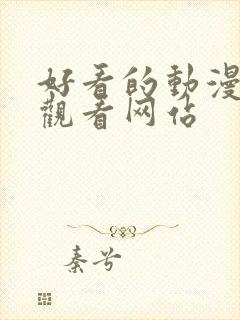 好看的動漫
觀看网佔
秦兮